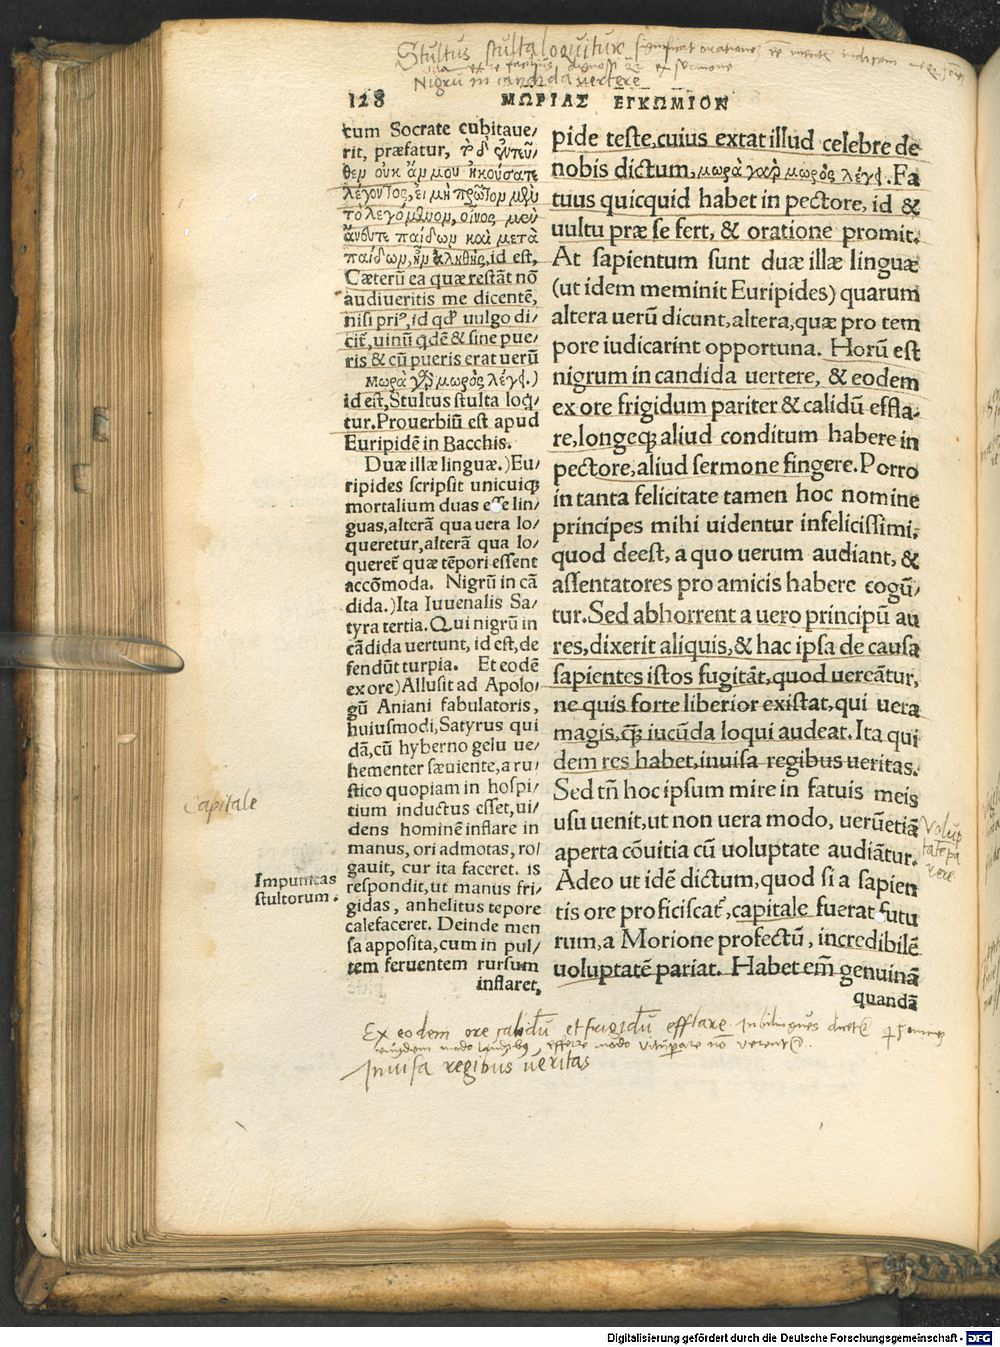 Stultus stulta loquitur significat orationem
Nigrum in candida vertere
128 ΜΩΡΙΑΣ ΕΓΚΩΜΙΟΝ
cum Socrate cubitaue/
rit, præfatur, τὸ δ' ἐντεῦ/
θεν οὐκ ἄν μου ἠκούσατε
λέγοντος, εἰ μὴ πρῶτον μὲν
τὸ λεγόμενον, οἶνος ἄνευ
τε παίδων καὶ μετὰ
παίδων, ἦν ἀληθής, id est,
Cæterũ ea quæ restãt nõ
audiueritis me dicentẽ,
nisi priꝰ, id qđ uulgo di/
cit̃, uinũ qdẽ & sine pue/
ris & cũ pueris erat uerũ
Μωρὰ γὰρ μωρὸς λέγει.)
id est, Stultus stulta loq̃/
tur. Prouerbiũ est apud
Euripidẽ in Bacchis.
Duæ illæ linguæ.) Eu/
ripides scripsit unicuiqꝫ
mortalium duas esse lin/
guas, alterã qua uera lo/
queretur, alterã qua lo/
queret̃ quæ tẽpori essent
accõmoda. Nigrũ in cã
dida.) Ita Iuuenalis Sa/
tyra tertia. Qui nigrũ in
cãdida uertunt, id est, de
fendũt turpia. Et eodẽ
ex ore) Allusit ad Apolo/
gũ Aniani fabulatoris,
huiusmodi, Satyrus qui
dã, cũ hyberno gelu ue/
hementer sæuiente, a ru/
stico quopiam in hospi/
tium inductus esset, ui/
dens hominẽ inflare in
manus, ori admotas, ro/
gauit, cur ita faceret. is
respondit, ut manus fri/
gidas, anhelitus tepore
calefaceret. Deinde men
sa apposita, cum in pul/
tem feruentem rursum
inflaret,
Capitale
Impunitas
stultorum.
pide teste, cuius extat illud celebre de
nobis dictum, μωρὰ γὰρ μωρὸς λέγει. Fa
tuus quicquid habet in pectore, id &
uultu præ se fert, & oratione promit.
At sapientum sunt duæ illæ linguæ
(ut idem meminit Euripides) quarum
altera uerũ dicunt, altera, quæ pro tem
pore iudicarint opportuna. Horũ est
nigrum in candida uertere, & eodem
ex ore frigidum pariter & calidũ effla-
re, longeqꝫ aliud conditum habere in
pectore, aliud sermone fingere. Porro
in tanta felicitate tamen hoc nomine
principes mihi uidentur infelicissimi,
quod deest, a quo uerum audiant, &
assentatores pro amicis habere cogũ/
tur. Sed abhorrent a uero principũ au
res, dixerit aliquis, & hac ipsa de causa
sapientes istos fugitãt, quod uereãtur,
ne quis forte liberior existat, qui uera
magis, q̃ꝫ iucũda loqui audeat. Ita qui
dem res habet, inuisa regibus ueritas.
Sed tñ hoc ipsum mire in fatuis meis
usu uenit, ut non uera modo, uerũetiã
aperta cõuitia cũ uoluptate audiãtur.
Adeo ut idẽ dictum, quod si a sapien
tis ore proficiscat̃, capitale fuerat futu
rum, a Morione profectũ, incredibilẽ
uoluptatẽ pariat. Habet em̃ genuinã
quandã
Volup
tatẽ pa
rere
Ex eodem ore calidũ et frigidũ efflare
Inuisa regibus ueritas
Digitalisierung gefördert durch die Deutsche Forschungsgemeinschaft - DFG